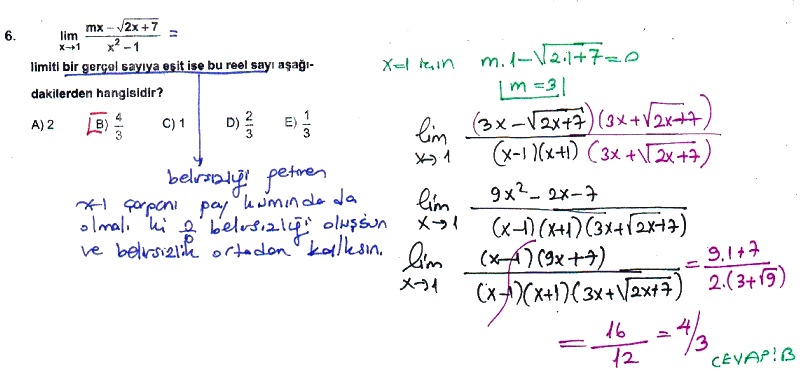 6. lim x→1 (mx − √(2x+7)) / (x² − 1) =
limiti bir gerçel sayıya eşit ise bu reel sayı aşağı-
dakilerden hangisidir?
A) 2 B) 4/3 C) 1 D) 2/3 E) 1/3
belirsizliği getiren
x-1 çarpanı pay kısmında da
olmalı ki 0/0 belirsizliği oluşsun
ve belirsizlik ortadan kalksın.
x=1 için m.1 − √(2.1+7) = 0
m = 3
lim x→1 (3x − √(2x+7)) (3x + √(2x+7)) / (x-1)(x+1) (3x + √(2x+7))
lim x→1 9x² − 2x − 7 / (x-1)(x+1)(3x + √(2x+7))
lim x→1 (x-1)(9x+7) / (x-1)(x+1)(3x + √(2x+7)) = 9.1+7 / 2.(3+√9)
= 16/12 = 4/3
CEVAP: B